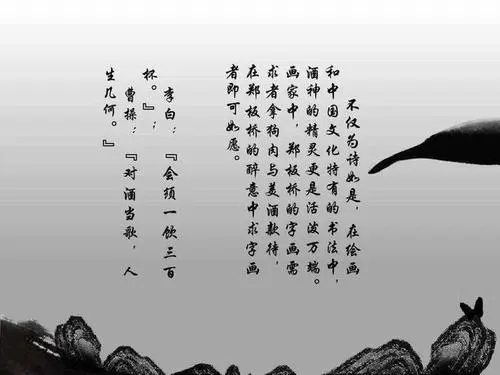 不仅为诗如是，在绘画
和中国文化特有的书法中，
酒神的精灵更是活泼万端。
画家中，郑板桥的字画需
求者拿狗肉与美酒款待，
在郑板桥的醉意中求字画
者即可如愿。
李白：『会须一饮三百
杯。』；
曹操：『对酒当歌，人
生几何。』